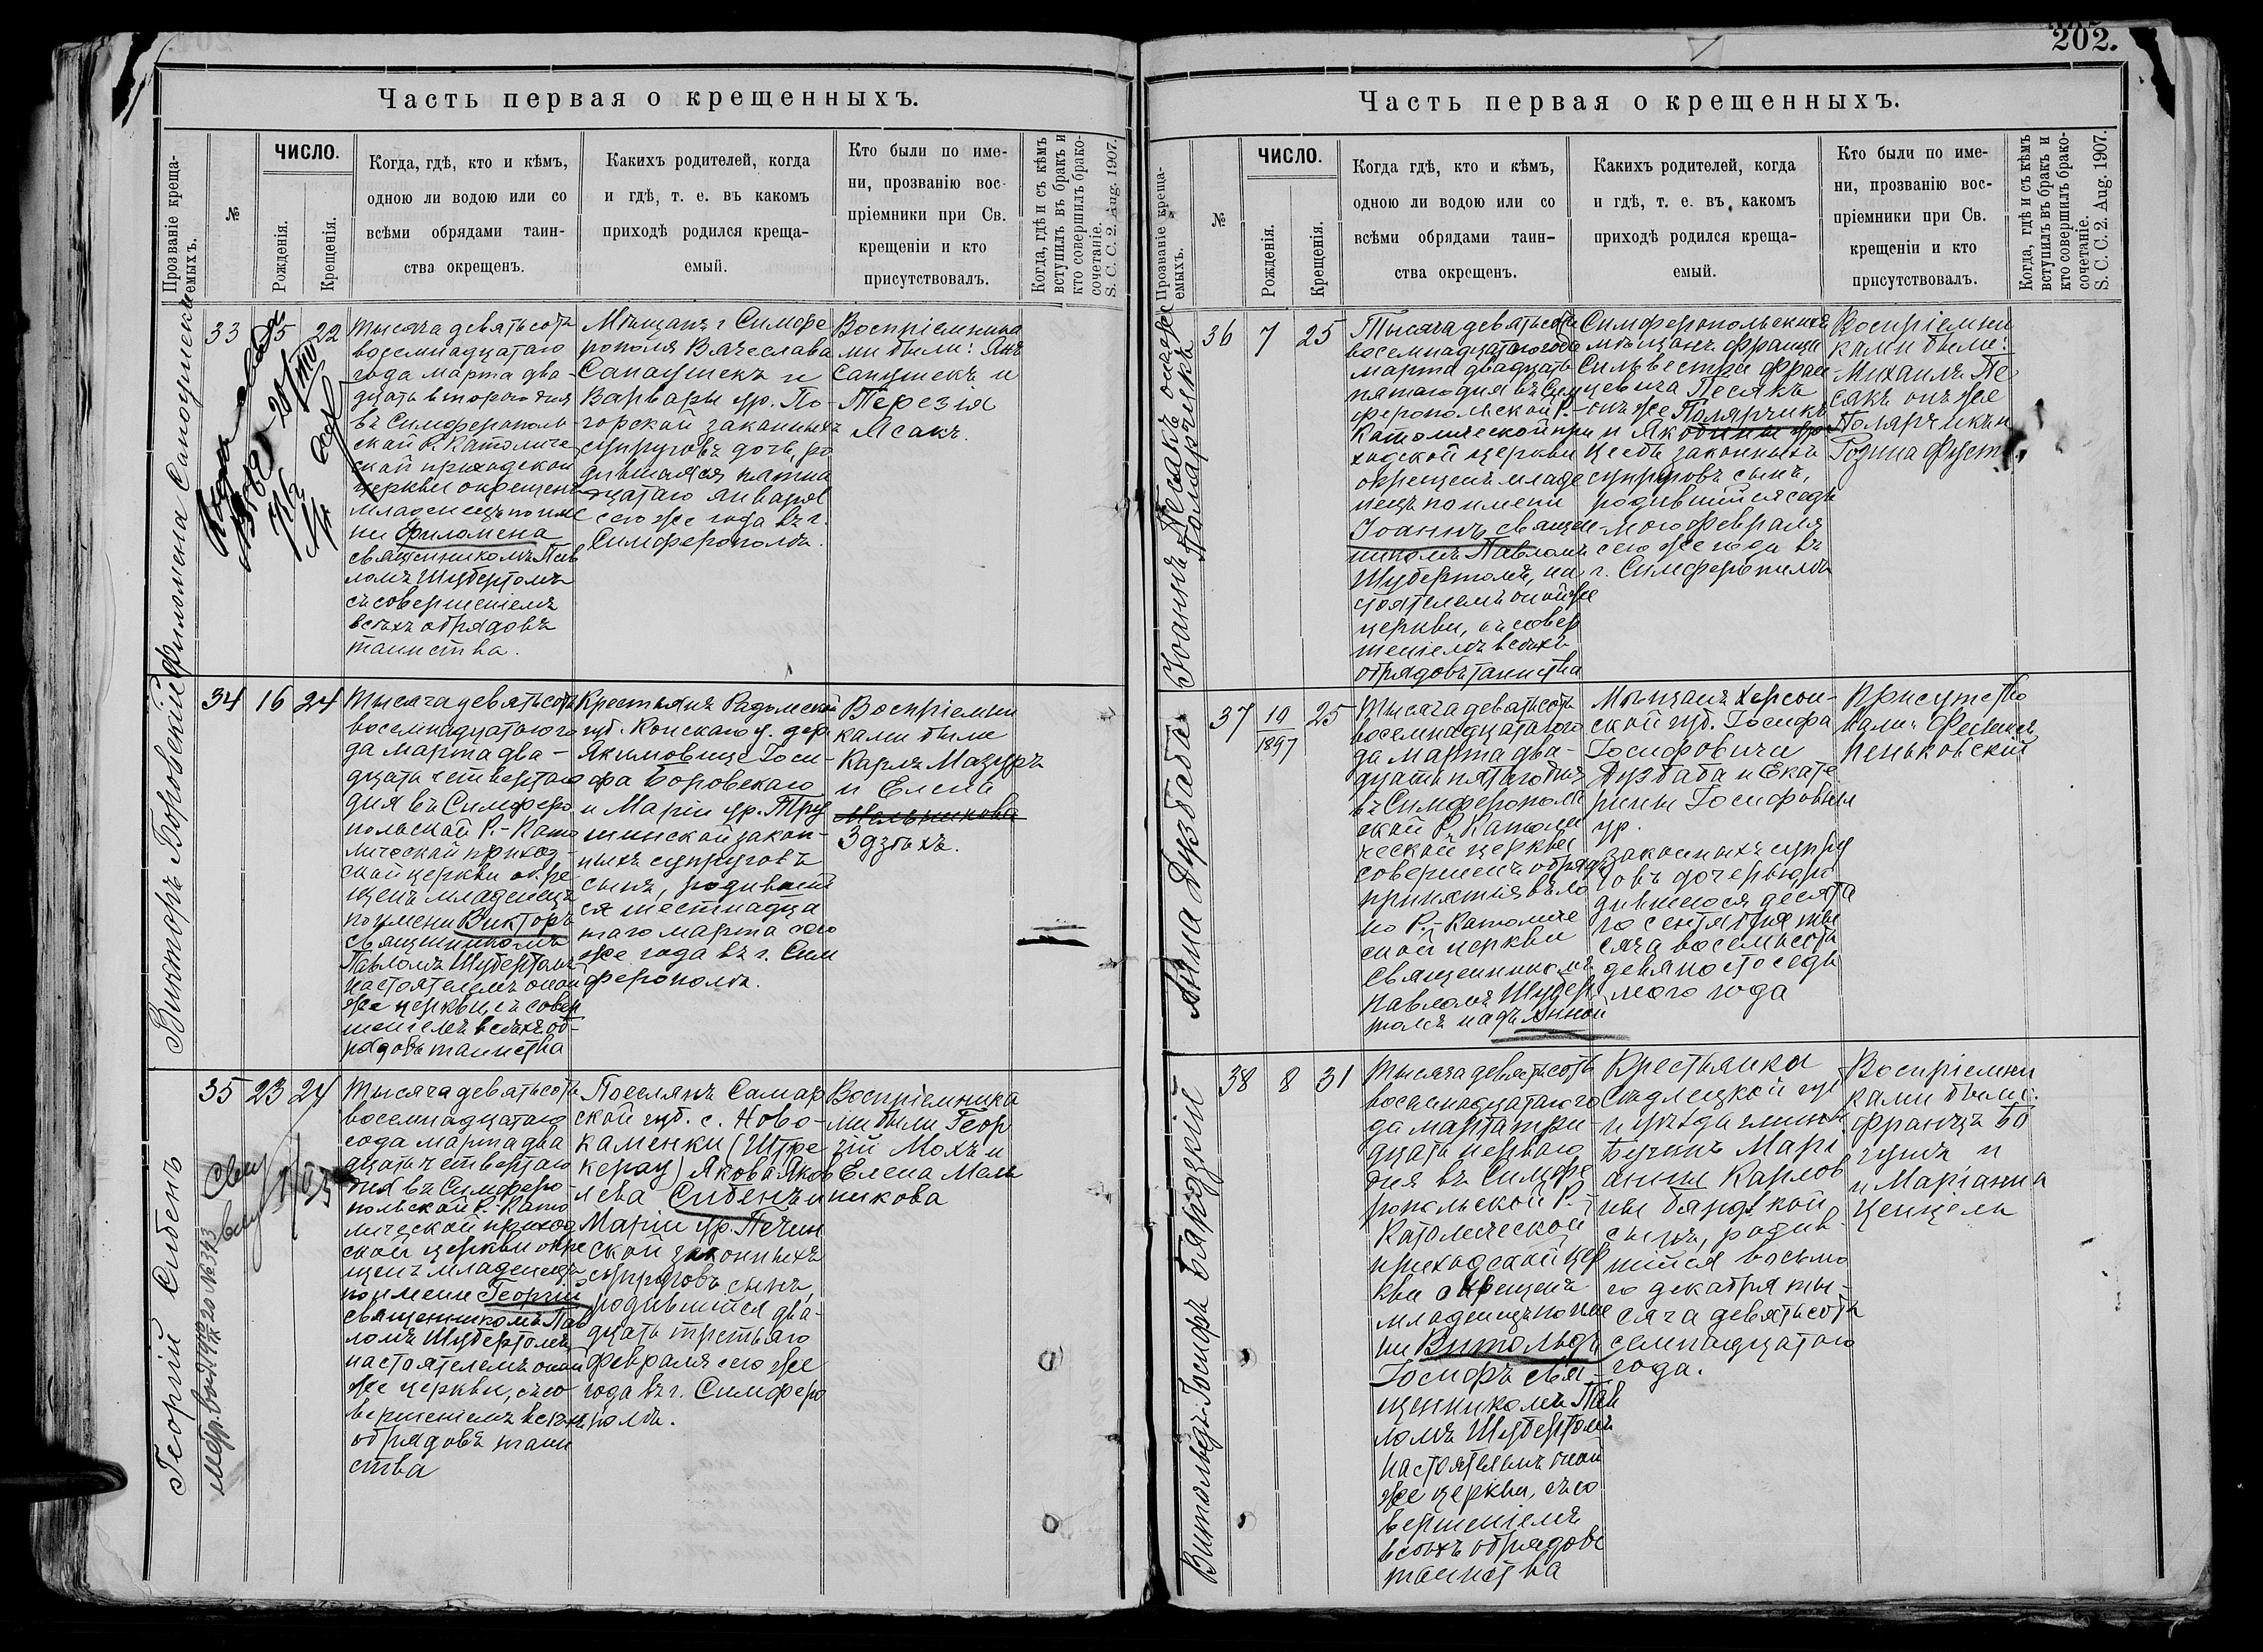 Часть первая о крещенныхъ.
Прозваніе креща-
емыхъ.
№
ЧИСЛО.
Рожденія.
Крещенія.
Когда, гдѣ, кто и кѣмъ,
одною ли водою или со
всѣми обрядами таин-
ства окрещенъ.
Какихъ родителей, когда
и гдѣ, т. е. въ какомъ
приходѣ родился креща-
емый.
Кто были по име-
ни, прозванію вос-
пріемники при Св.
крещеніи и кто
присутствовалъ.
Когда, гдѣ и съ кѣмъ
вступилъ въ бракъ и
кто совершилъ брако-
сочетаніе.
S. C. C. 2. Aug. 1907.
Филомена Сапоушекъ
33
5
22
Тысяча девятьсотъ
восемнадцатаго
года марта два-
дцать второго дня
въ Симферополь-
ской Р. Католиче-
ской приходской
церкви окрещенъ
младенецъ по име
ни Филомена
священникомъ Пав
ломъ Шубертомъ
съ совершеніемъ
всѣхъ обрядовъ
таинства.
Мѣщанъ г. Симфе
рополя Вячеслава
Сапоушекъ и
Варвары ур. По-
горской законныхъ
супруговъ дочь, ро
дившаяся пятна
дцатаго января
сего же года въ г.
Симферополѣ.
Воспріемника
ми были: Янъ
Сапушекъ и
Терезія
Мсакъ.
Викторъ Боровскій
34
16
24
Тысяча девятьсотъ
восемнадцатаго го
да марта два-
дцать четвертаго
дня въ Симферо
польской Р.-Като
лической приход
ской церкви окре
щенъ младенецъ
по имени Викторъ
священникомъ
Павломъ Шубертомъ
настоятелемъ оной
же церкви, съ совер
шеніемъ всѣхъ об-
рядовъ таинства
Крестьянъ Радомской
губ. Конскаго у. дер.
Якимовице Іоси-
фа Боровскаго
и Маріи ур. Тру
шинской закон-
ныхъ супруговъ
сынъ, родивший
ся шестнадца
таго марта сего
же года въ г. Сим
ферополѣ.
Воспріемни
ками были
Карлъ Мазуръ
и Елена
Мельникова
Здзѣхъ.
Георгій Сибенъ
35
23
24
Тысяча девятьсотъ
восемнадцатаго
года марта два
дцать четвертаго
дня въ Симферо
польской Р.-Като
лической приход
ской церкви окре
щенъ младенецъ
по имени Георгій
священникомъ Пав
ломъ Шубертомъ
настоятелемъ оной
же церкви, съ со
вершеніемъ всѣхъ
обрядовъ таин
ства
Поселянъ Самар
ской губ. с. Ново-
каменки (Штре
керау) Якова Яков
лева Сибенъ и
Маріи ур. Печин
ской законныхъ
супруговъ сынъ,
родившійся два-
дцать третьяго
февраля сего же
года въ г. Симферо
полѣ.
Воспріемника
ми были Геор
гій Мохъ и
Елена Мель
никова
202.
Часть первая о крещенныхъ.
Прозваніе креща-
емыхъ.
№
ЧИСЛО.
Рожденія.
Крещенія.
Когда гдѣ, кто и кѣмъ,
одною ли водою или со
всѣми обрядами таин-
ства окрещенъ.
Какихъ родителей, когда
и гдѣ, т. е. въ какомъ
приходѣ родился креща-
емый.
Кто были по име-
ни, прозванію вос-
пріемники при Св.
крещеніи и кто
присутствовалъ.
Когда, гдѣ и съ кѣмъ
вступилъ въ бракъ и
кто совершилъ брако-
сочетаніе.
S. C. C. 2. Aug. 1907.
Іоаннъ Песакъ онъ же
Полярчикъ
36
7
25
Тысяча девятьсотъ
восемнадцатаго года
марта двадцать
пятаго дня въ Сим
феропольской Р.-
Католической при
ходской церкви
окрещенъ младе
нецъ по имени
Іоаннъ священ
никомъ Павломъ
Шубертомъ, на
стоятелемъ оной же
церкви, съ совер
шеніемъ всѣхъ
обрядовъ таинства
Симферопольскихъ
мѣщанъ Франца
Сильвестра Фран
цевича Песякъ
онъ же Полярчикъ
и Якобины ур.
Цесбъ законныхъ
супруговъ сынъ,
родившійся седь
мого февраля
сего же года въ
г. Симферополѣ
Воспріемни
ками были:
Михаилъ Пе
сякъ онъ же
Полярчикъ и
Родина Фуст
Анна Дузбаба
37
10
1897
25
Тысяча девятьсотъ
восемнадцатаго го
да марта два-
дцать пятаго дня
въ Симферополь
ской Р. Католи
ческой церкви
совершенъ обрядъ
принятія въ ло
но Р.-Католиче
ской церкви
священникомъ
Павломъ Шубер
томъ надъ Анной
Мѣщанъ Херсон-
ской губ. Іосифа
Іосифовича
Дузбаба и Екате
рины Іосифовны
ур.
законныхъ супру
говъ дочерью, ро
дившеюся десята
го сентября ты
сяча восемьсотъ
девяносто седь
мого года
Присутство
вали: Феликсъ
Пеньковскій
Витольдъ-Іосифъ Бяродзкій
38
8
31
Тысяча девятьсотъ
восемнадцатаго го
да марта три-
дцать перваго
дня въ Симфе
ропольской Р.-
Католической
приходской цер
кви окрещенъ
младенецъ по име
ни Витольдъ
Іосифъ свя-
щенникомъ Пав
ломъ Шубертомъ
настоятелемъ оной
же церкви, съ со
вершеніемъ
всѣхъ обрядовъ
таинства
Крестьянка
Сѣдлецкой гу
и уѣзда гмины
Марі
анны Карлов
ны
сынъ, родив-
шійся восьмо
го декабря ты-
сяча девятьсотъ
семнадцатаго
года.
Воспріемни
ками были:
Францъ Бо
гушъ и
и Маріанна
Ценцель